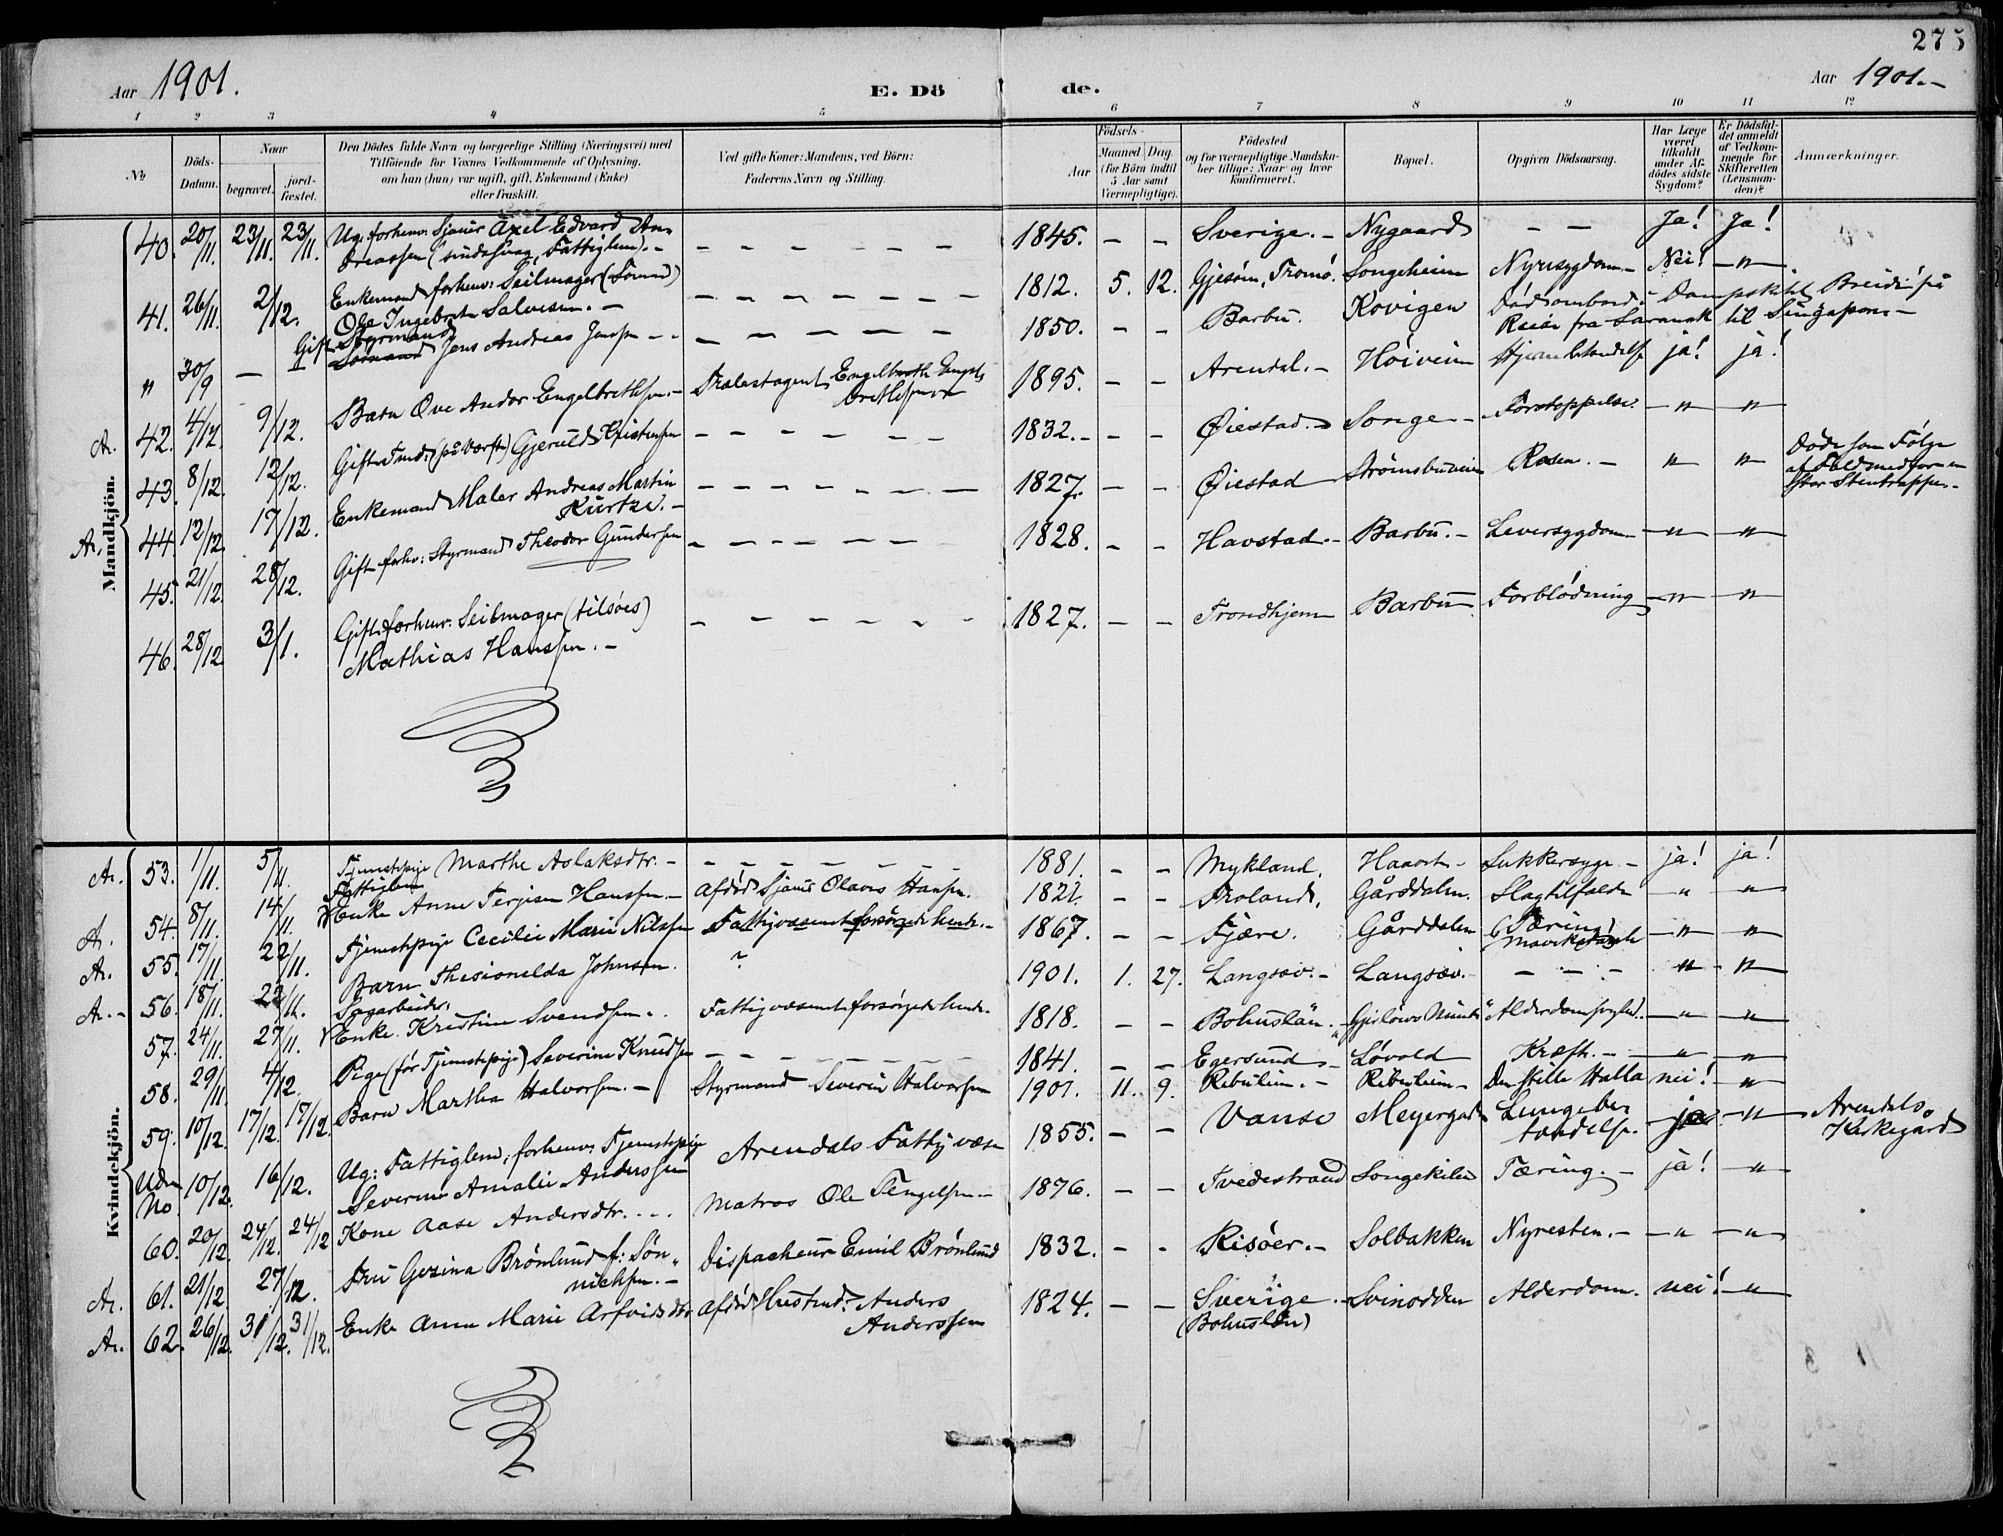 275
Aar 1901.
E. Döde.
Aar 1901.-
1 2 3 4 5 6 7 8 9 10 11 12
№
Döds-Datum.
Naar
begravet.
jord-fæstet.
Den Dödes fulde Navn og borgerlige Stilling (Næringsvei) med
Tilföiende for Voxnes Vedkommende af Oplysning.
om han (hun) var ugift, gift, Enkemand (Enke)
eller fraskilt.
Ved gifte Koner: Mandens, ved Börn:
Faderens Navn og Stilling.
Födsels-
Aar
Maaned Dag
(for Börn indtil
5 Aar samt
Værnepligtige).
Födested
og for værnepligtige Mandska-
ber tillige: Naar og hvor
konfirmeret.
Bopæl.
Opgiven Dödsaarsag.
Har Læge
været
tilkaldt
under Af-
dödes sidste
Sygdom?
Er Dödsfal-
det anmeldt
af Vedkom-
mende for
Skifteretten
(Lensman-
den)?
Anmærkninger.
Mandkjön.
40. 20/11. 23/11. 23/11. Ug: forhenv: Sjauer Axel Edvard An-
dreassen (sindssvag, Fattiglem).- 1845. - - Sverige.- Nygaard - - Ja! Ja!
41. 26/11. 2/12. Enkemand forhenv: Seilmager (Sømand)
Ole Ingebret Salvesen.- 1812. 5. 12. Gjesøen, Tromø. Songeheien Nyresygdom.- Nei! -"-
" 30/9 - Gift Styrmand
Sømand Jens Andreas Jensen - 1850. - - Barbu. Kovigen Død ombord i Dampskibet Breid på
Reise fra Sarawak til Singapore-
Ar. 42. 4/12. 9/12. Barn Ove Andor Engelbrethsen.- Trælastagent Engelbreth Engel-
brethsen 1895. - - Arendal.- Høiveien Hjernebetændelse ja! ja!
43. 8/12. 12/12. Gift Tmd: (på Værft) Gjeruld Kristensen 1832.- - - Øiestad.- Songe- Forstoppelse. -"- -"-
Ar. 44. 12/12. 17/12. Enkemand Maler Andreas Martin
Kurtze.- 1827. - - Øiestad Strømsbuveien Rosen.- " " Døde som Følge
af Fald
stor Stentrappe.-
45. 21/12. 28/12. Gift forhv: Styrmand Theodor Gundersen 1828. - - Havstad.- Barbu.- Leversygdom -"- -"-
46. 28/12 3/1. Gift forhenv. Seilmager (tilsøes)
Mathias Hanssen.- 1827. - - Trondhjem Barbu Forblødning -"- -"-
Kvindekjön.
Ar. 53. 1/11. 5/11. Tjenestepige Marthe Aslaksdtr.- 1881. - - Mykland. Sukkersyge- ja! ja!
Ar. 54. 8/11. 14/11. Fattiglem
Enke Anne Terjesen Hanssen.- Afdød Sjauer Olaves Hansen. 1822. - - Froland. Gårddalen. Slagtilfælde " "
Ar. 55. 17/11. 22/11. Tjenstepige Cecilie Marie Nilssen Fattigvæsenet forsørgede hende.- 1867. - - Fjære. Gårddalen Tæring -"- -"-
Ar.- 56. 18/11. 23/11. Barn Thesionelda Johnsen. ? 1901. 1. 27. Langsæv.- Langsæv.- - - - " -"-
57. 24/11. 27/11. Sagarbeider:
Enke Kristine Svendsen.. Fattigvæsenet forsørgede hende. 1818. - - Bohuslän. Gjeslöws Minde Alderdomssvaghed. -"- -"-
58. 29/11. 4/12. Pige (før Tjenestepige) Severine Knudsen 1841. - - Egersund- Løvold Kræft.- " -"-
59. 10/12. 17/12. 17/12. Barn Martha Halvorsen.- Styrmand Severin Halvorsen 1901. 11. 9. Ribeheien.- Ribeheien- Den stille Halla nei! -"-
Uden
No. 10/12. 16/12. Ug: Fattiglem, forhenv. Tjenstepige
Severine Amalie Anderssen Arendals Fattigvæsen 1855. - - Vanse Meyergad. Lungebe-
tændelse. ja -"- Arendals
Kirkegård
60. 20/12. 24/12. 24/12 Kone Aase Andersdtr. .-. Matros Ole Tengelsen- 1876. - - Tvedestrand Songekilen Tæring.- ja! -"-
Ar. 61. 21/12. 27/12. Fru Gezina Brönlund f: Søn-
nichsen.- Dispacheur Emil Brönlund 1832. - - Risöer.- Solbakken Nyresten.- -"- -"-
Ar. 62. 26/12. 31/12. 31/12. Enke Anne Marie Arfvidsdtr Afdød Hustmd: Anders
Anderssen 1824. - - Sverige.
(Bohuslän) Svinodden Alderdom. nei! -"-